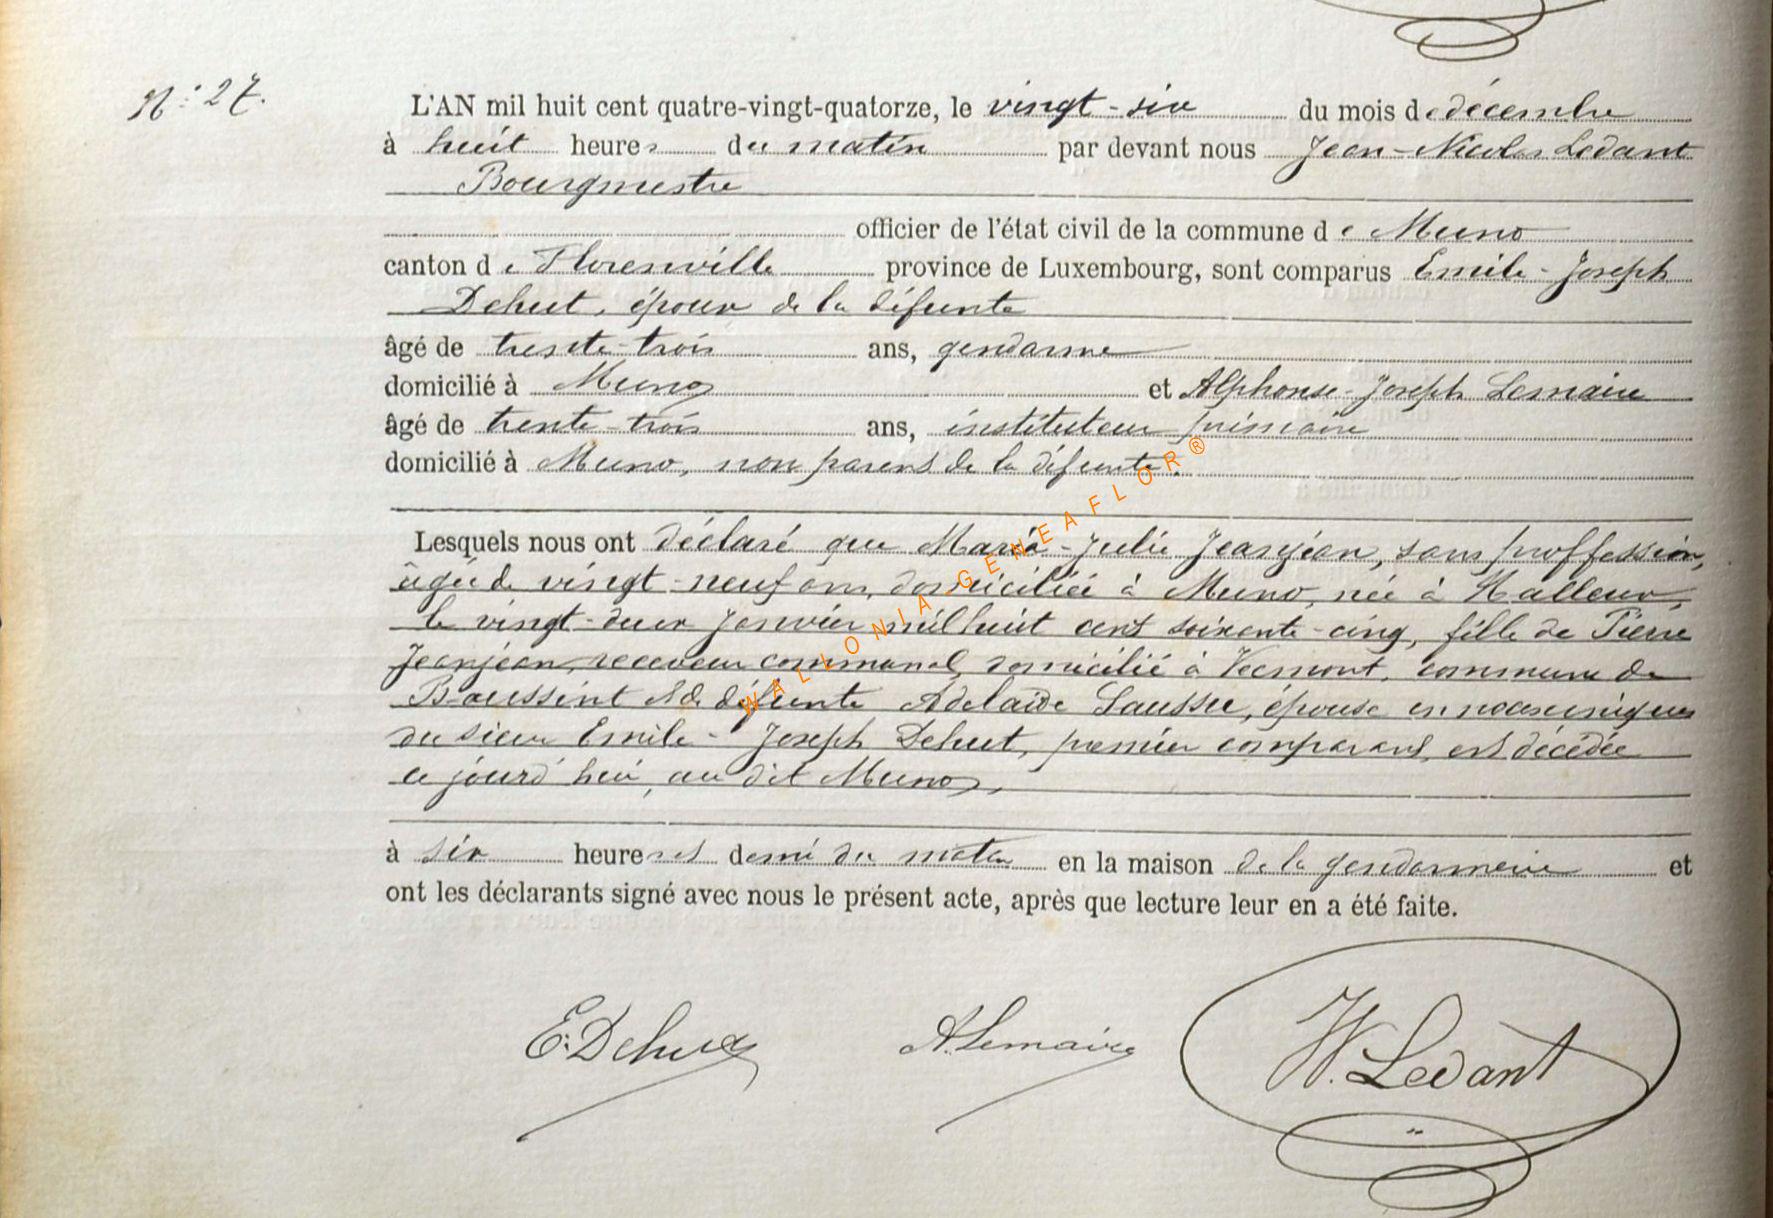 N° 27.
L'AN mil huit cent quatre-vingt-quatorze, le vingt-six du mois de décembre
à huit heures du matin par devant nous Jean-Nicolas Ledant
Bourgmestre
officier de l'état civil de la commune de Muno
canton de Florenville province de Luxembourg, sont comparus Emile-Joseph
Dehut, époux de la défunte
âgé de trente-trois ans, gendarme
domicilié à Muno et Alphonse-Joseph Lemaire
âgé de trente-trois ans, instituteur primaire
domicilié à Muno, non parent de la défunte.
Lesquels nous ont déclaré que Maria-Julie Jeanjean, sans proffession,
âgée de vingt-neuf ans, domiciliée à Muno, née à Halleux,
le vingt-deux Janvier mil huit cent soixante-cinq, fille de Pierre
Jeanjean, receveur communal, domicilié à Vecmont, commune de
Baussint & de défunte Adelaïde Laussee, épouse en noces uniques
du sieur Emile-Joseph Dehut, premier comparant, est décédée
ce jourd'hui, au dit Muno,
à six heures et demi du matin en la maison de la gendarmerie et
ont les déclarants signé avec nous le présent acte, après que lecture leur en a été faite.
E. Dehut A. Lemaire N. Ledant
WALLONIA GENEAFLOR®